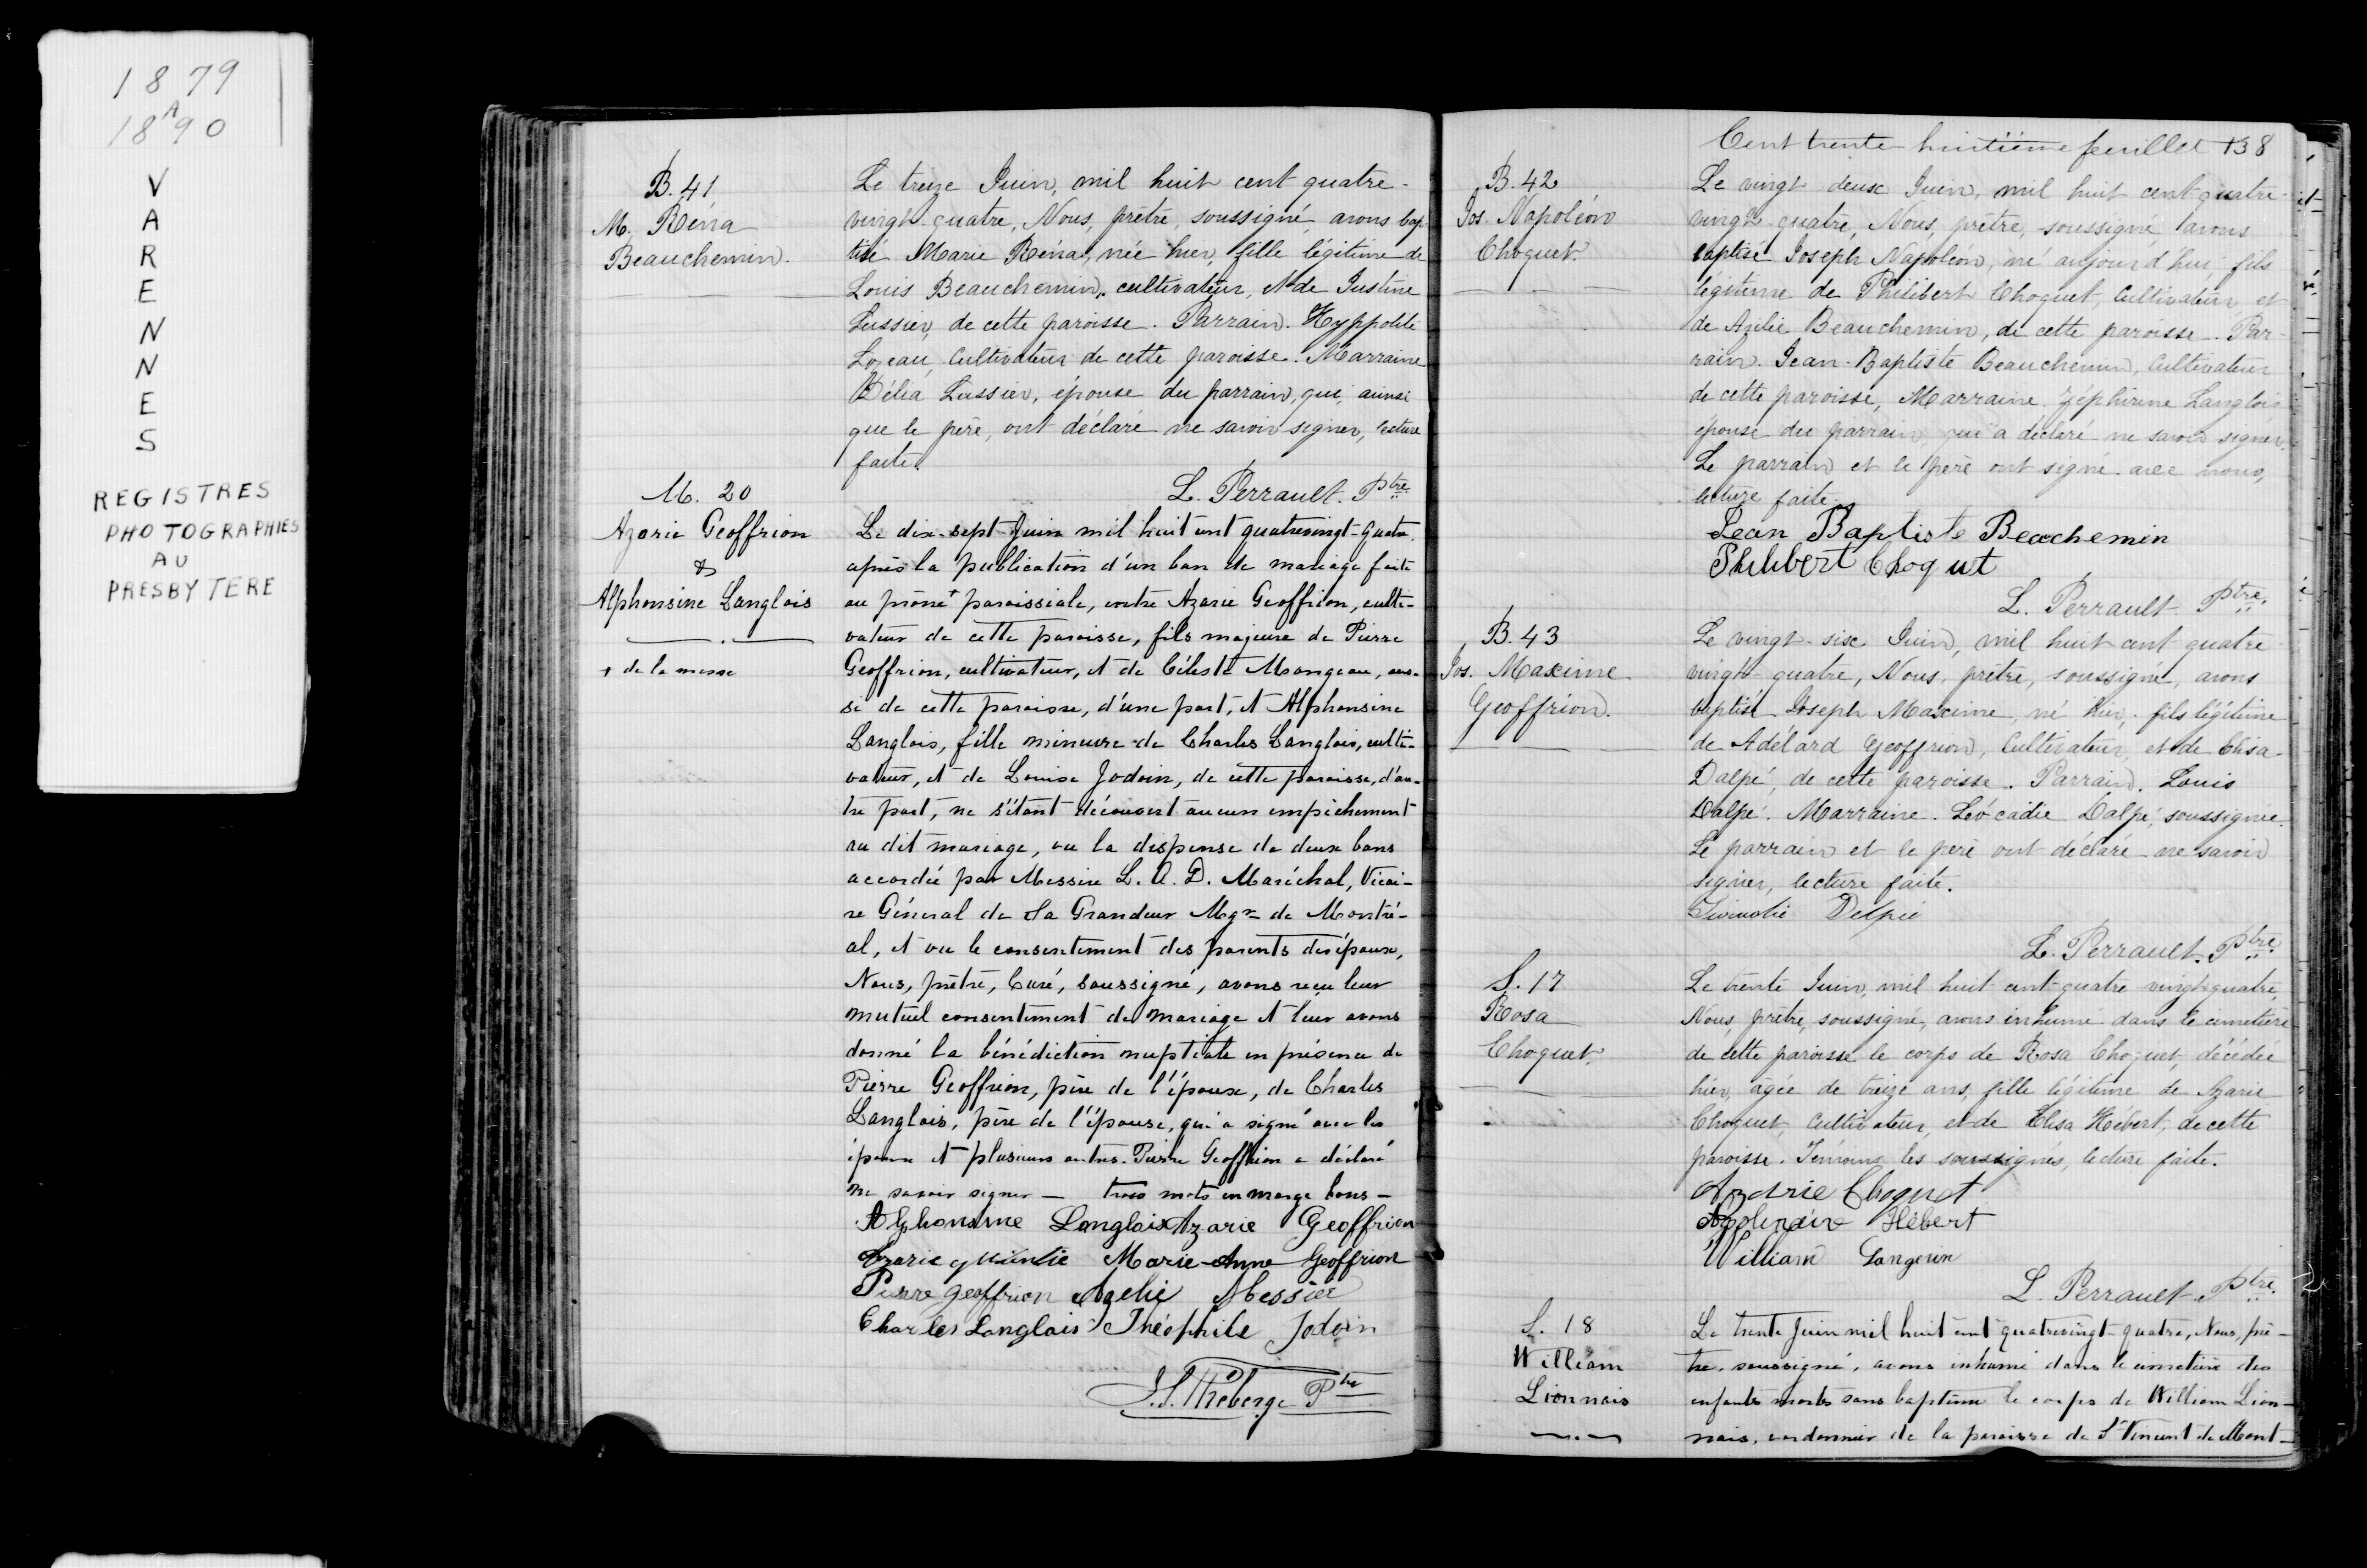 1879
A
1890
V
A
R
E
N
N
E
S
REGISTRES
PHOTOGRAPHIES
AU
PRESBYTERE
B. 41
M. Réna
Beauchemin.
Le treize Juin, mil huit cent quatre-
vingt-quatre, Nous, prêtre, soussigné, avons bap-
tisé Marie Réna, née hier, fille légitime de
Louis Beauchemin, cultivateur, & de Justine
Lussier, de cette paroisse. Parrain. Hyppolite
Lozeau, Cultivateur de cette paroisse. Marraine
Délia Lussier, épouse du parrain, qui, ainsi
que le père, ont déclaré ne savoir signer, lecture
faite.
L. Perrault. Ptre.
M. 20
Azarie Geoffrion
&
Alphonsine Langlois
+ de la messe
Le dix-sept Juin mil huit cent quatrevingt-quatre,
après la publication d'un ban de mariage faite
au prône + paroissiale, entre Azarie Geoffrion, culti-
vateur de cette paroisse, fils majeure de Pierre
Geoffrion, cultivateur, et de Céleste Mongeau, aus-
si de cette paroisse, d'une part, et Alphonsine
Langlois, fille mineure de Charles Langlois, culti-
vateur, et de Louise Jodoin, de cette paroisse, d'au-
tre part, ne s'étant découvert aucun empêchement
au dit mariage, vu la dispense de deux bans
accordée par Messire L. A. D. Maréchal, Vicai-
re Général de Sa Grandeur Mgr de Montré-
al, et vu le consentement des parents des époux,
Nous, prêtre, Curé, soussigné, avons reçu leur
mutuel consentement de mariage et leur avons
donné la bénédiction nuptiale en présence de
Pierre Geoffrion, père de l'époux, de Charles
Langlois, père de l'épouse, qui a signé avec les
époux et plusieurs autres. Pierre Geoffrion a déclaré
ne savoir signer — trois mots en marge bons —
Alphonsine Langlois Azarie Geoffrion
Azarie Marie-Anne Geoffrion
Pierre geoffrion Azelie Messier
Charles Langlois Théophile Jodoin
J. S. Théberge Ptre
Cent trente huitième feuillet 138
B. 42
Jos. Napoléon
Choquet.
Le vingt deux Juin, mil huit cent quatre-
vingt-quatre, Nous, prêtre, soussigné avons
baptisé Joseph Napoléon, né aujourd'hui, fils
légitime de Philibert Choquet, Cultivateur, et
de Azilie Beauchemin, de cette paroisse. Par-
rain. Jean-Baptiste Beauchemin, Cultivateur
de cette paroisse, Marraine. Zéphirine Langlois
épouse du parrain, qui a déclaré ne savoir signer.
Le parrain et le père ont signé avec nous,
lecture faite.
Jean Baptiste Beacchemin
Philibert Choqut
L. Perrault Ptre.
B. 43
Jos. Maxime
Geoffrion.
Le vingt-six Juin, mil huit cent quatre
vingt-quatre, Nous, prêtre, soussigné, avons
baptisé Joseph Maxime, né hier, fils légitime
de Adélard Geoffrion, Cultivateur, et de Elisa
Dalpé, de cette paroisse. Parrain. Louis
Dalpé. Marraine. Léocadie Dalpé, soussignée.
Le parrain et le père ont déclaré ne savoir
signer, lecture faite.
Delpié
L. Perrault. Ptre.
S. 17
Rosa
Choquet.
Le trente Juin, mil huit cent quatre vingt-quatre,
Nous, prêtre, soussigné, avons inhumé dans le cimetière
de cette paroisse le corps de Rosa Choquet, décédée
hier, âgée de treize ans, fille légitime de Azarie
Choquet, Cultivateur, et de Elisa Hébert, de cette
paroisse. Témoins les soussignés, lecture faite.
Azarie Choquet
Apolinaire Hébert
William Langevin
L. Perrault. Ptre.
S. 18
William
Lionnais
Le trente Juin mil huit cent quatrevingt-quatre, Nous, prê-
tre, soussigné, avons inhumé dans le cimetière des
enfants morts sans baptême le corps de William Lion-
nais, cordonnier de la paroisse de St Vincent de Mont-